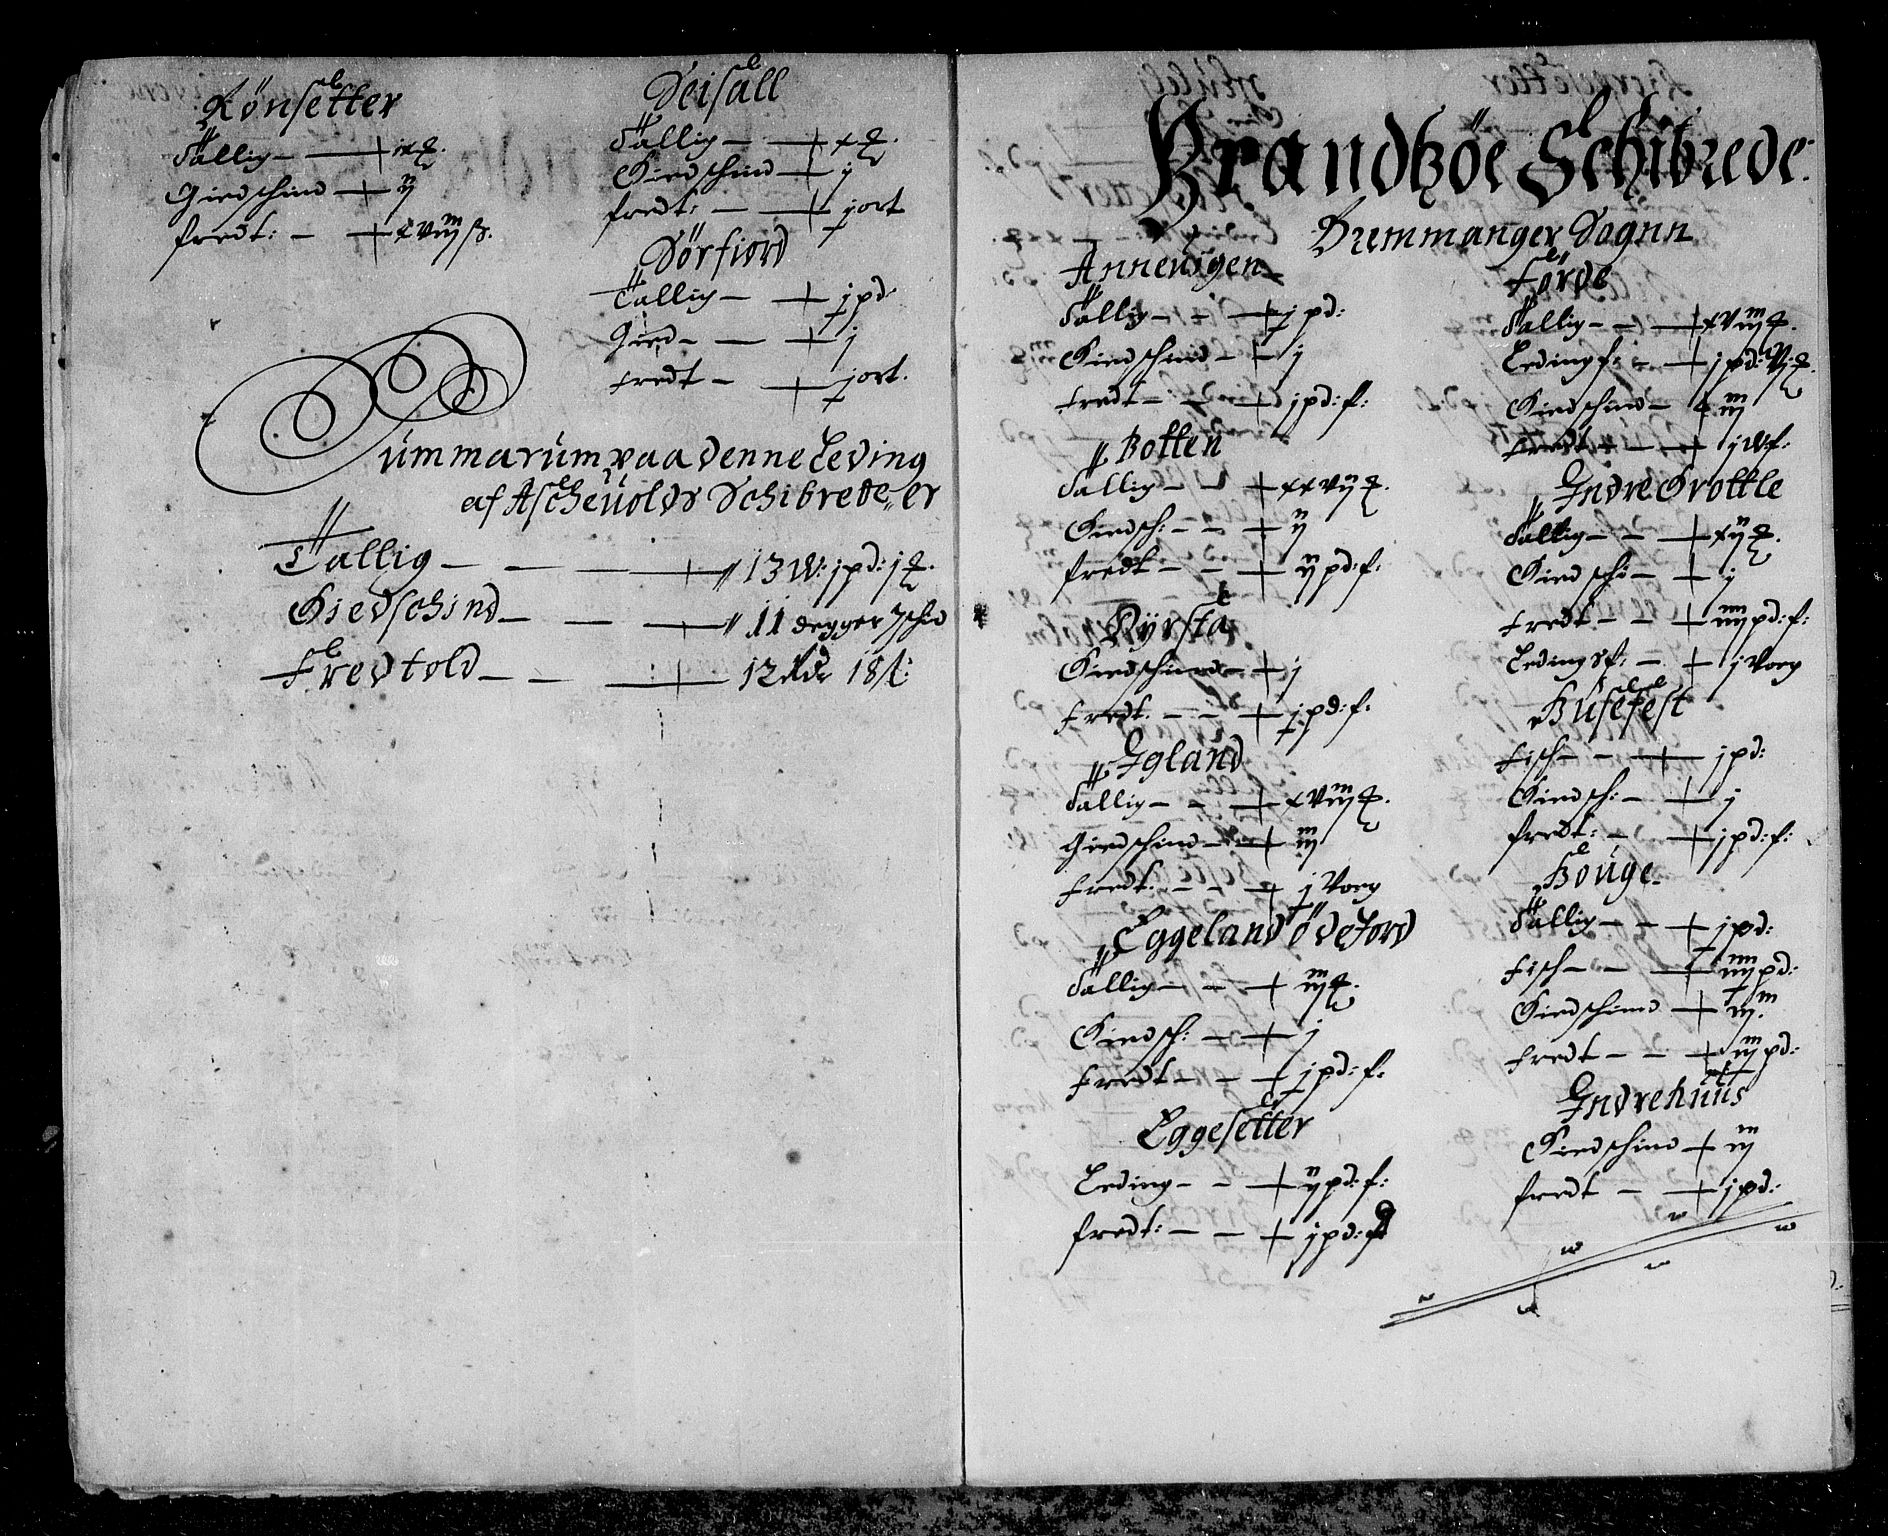 Rönsetter
Tallig — + ix ꝶ.
Giedschind — + ij
fredt: — + xviij ß.
Seisäll
Tallig — + x ꝶ.
Giedschind — + j
fredt: — + j ort
Sörfiord
Tallig — + j pd:
Gied — — + j
fredt — + j ort.
Summarum paa denne Leding
af Ascheuolds Schibrede, er
Tallig — — — + 13 W: j pd: j ꝶ.
Giedschind — — + 11 degger 7 schid
Fredtold — — + 12 Rdr 18 ß:
Brandtzöe Schibrede.
Bremmanger Sognn
Anneuigen
Tallig — — + j pd:
Giedschind — + j
fredt — — + j pd: f:
Botten
Tallig — — + xxvij ꝶ.
Giedsch: — — + ij
fredt — — + ij pd: f:
Nyrsta
Giedschind — + j
fredt. — — + j pd: f.
Igland
Tallig — — + xviij ꝶ.
Giedschind — + iij
fredt. — — + j Voeg
Eggeland öde Jord
Tallig — — + iij ꝶ.
Giedsch: — + j
fredt — — + j pd: f:
Eggesetter
Leding — — + ij pd: f:
fredt: — — + j pd: f
Förde
Tallig — — + xviij ꝶ.
Leding f: — + j pd: vj ꝶ.
Giedschind — + iij
fredt — — + j W f:
Indre Grottle
Tallig — — + xij ꝶ.
Giedschi — — + j
fredt — — + iiij pd: f:
Ledings f: — + j Voeg
Busefest
Fisch — — + j pd:
Giedsch: — + j
fredt: — + j pd: f:
Böuge
Tallig — — + j pd:
Fisch — — + iiij pd:
Giedschind — + iij.
fredt — — + iij pd:
Indrehuus
Giedschind + iij
fredt — + j pd: